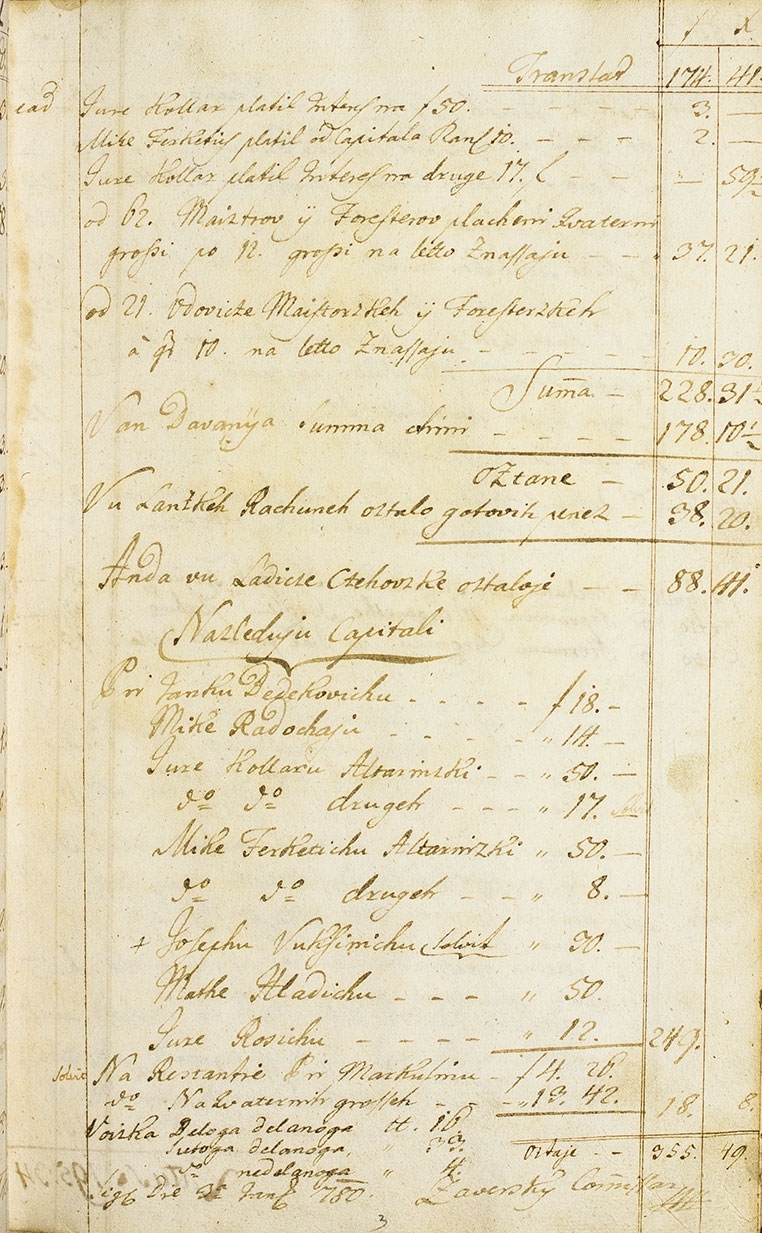 f x
Translat 174. 41.
Jure Kollar platil Interess na f 50. - - - 3. —
Mike Ferketich platil od Capitala Ranf 10. - - - 2. —
Jure Kollar platil Interes na druge 17. f - - — 59
od 62. Maisztrov ij Foresterov placheni Kvaterni
grossi po 12. grossi na letto Znassaju - - 37. 21.
od 21. Vdovicze Maistorzkeh ij Foresterzkeh
à gr 10. na letto Znassaju - - - - 10. 30.
Summa - 228. 31
Van Davanÿa summa chini - - - - 178. 10
Oztane - 50. 21.
Vu Lanzkeh Rachuneh ostalo gotovih penez - 38. 20.
Anda vu Ladicze Czehovzke ostaloje - - 88. 41.
Nazleduju Capitali
Pri Janku Dedekovichu - - - - f 18. -
Mike Radochaju - - - - - " 14. —
Jure Kollaru Altarinzki - - " 50. —
do do drugeh - - - " 17. solvit
Mike Ferketichu Altarinzki " 50. —
do do drugeh - - " 8. —
+ Josephu Vukshinichu solvit " 30. —
Mathe Hladichu - - - " 50.
Jure Rosichu - - - - - " 12. 249.
solvit Na Restantie Pri Markulinu - f 4. 26.
do Na kvaternih grosseh - - - " 13. 42. 18. 8.
Voszka Beloga delanoga tt. 16
Sutoga delanoga, " 33. Ostaje - - 355. 49.
do nedelanoga " 4.
Sigl Die 3a Janr 780. Zaverszky Comissar
3